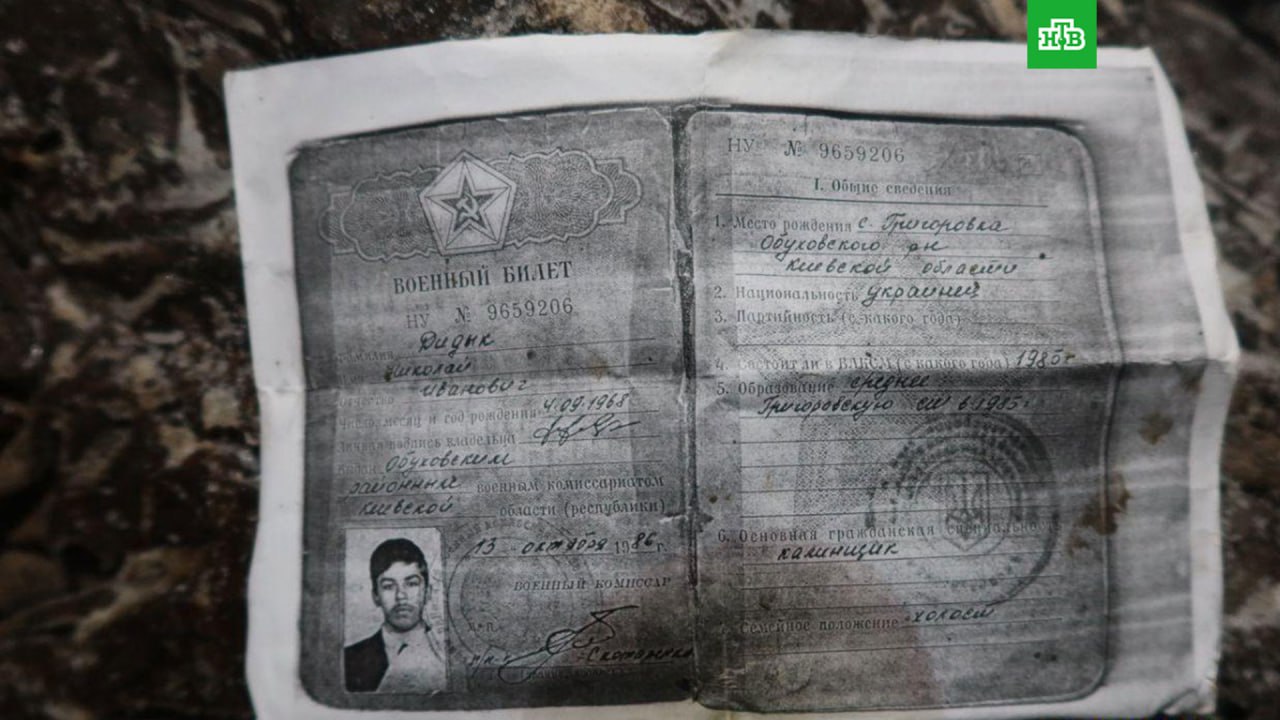 НТВ
ВОЕННЫЙ БИЛЕТ
НУ № 9659206
Фамилия Дидык
Николай
Отчество Иванович
Число, месяц и год рождения 4.09.1968
Личная подпись владельца
Выдан Обуховским
районным военным комиссариатом
Киевской области (республики)
13 октября 1986 г.
ВОЕННЫЙ КОМИССАР
НУ № 9659206
I. Общие сведения
1. Место рождения с. Григоровка
Обуховского р-н
Киевской области
2. Национальность украинец
3. Партийность (с какого года)
4. Состоит ли в ВЛКСМ (с какого года) 1985 г
5. Образование среднее
Григоровскую сш в 1985 г.
6. Основная гражданская специальность
каменщик
7. Семейное положение холост